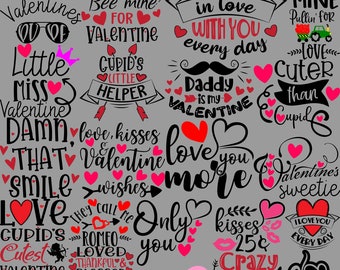 Valentines
Bee mine
FOR
VALENTINE
in love
WITH YOU
every day
MINE
Pullin' FOR
LOVE
CUTER
than
Cupid
Little
Miss
Valentine
CUPID'S
LITTLE
HELPER
Daddy
IS MY
VALENTINE
DAMN,
THAT
SMILE
love, kisses
&
Valentine
wishes
love
you
more
Valentine's
sweetie
LOVE
CUPID'S
Cutest
VALENTINE
THEY CALL ME
ROMEO
LOVED
THANKFUL &
Only
you
kisses
25¢
Crazy
I LOVE
YOU
EVERY DAY